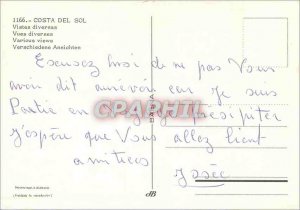 1166.- COSTA DEL SOL
Vistas diversas
Vues diverses
Various views
Verschiedene Ansichten
Excusez moi de ne pas Vous
avoir dit aurevoir car Je suis
Partie en
J'espère que Vous allez bient
amitiees
Josée
CPAPHIL